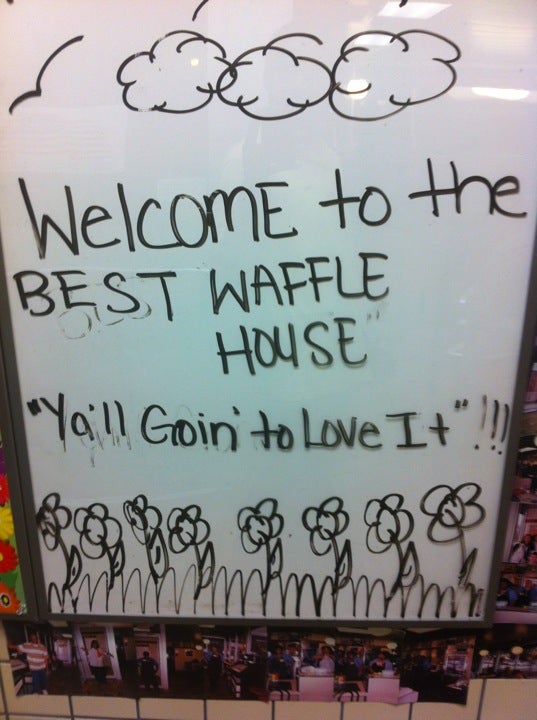 WelcomE to the
BEST WAFFLE
HOUSE"
"Ya'll Goin' to Love It"!!!